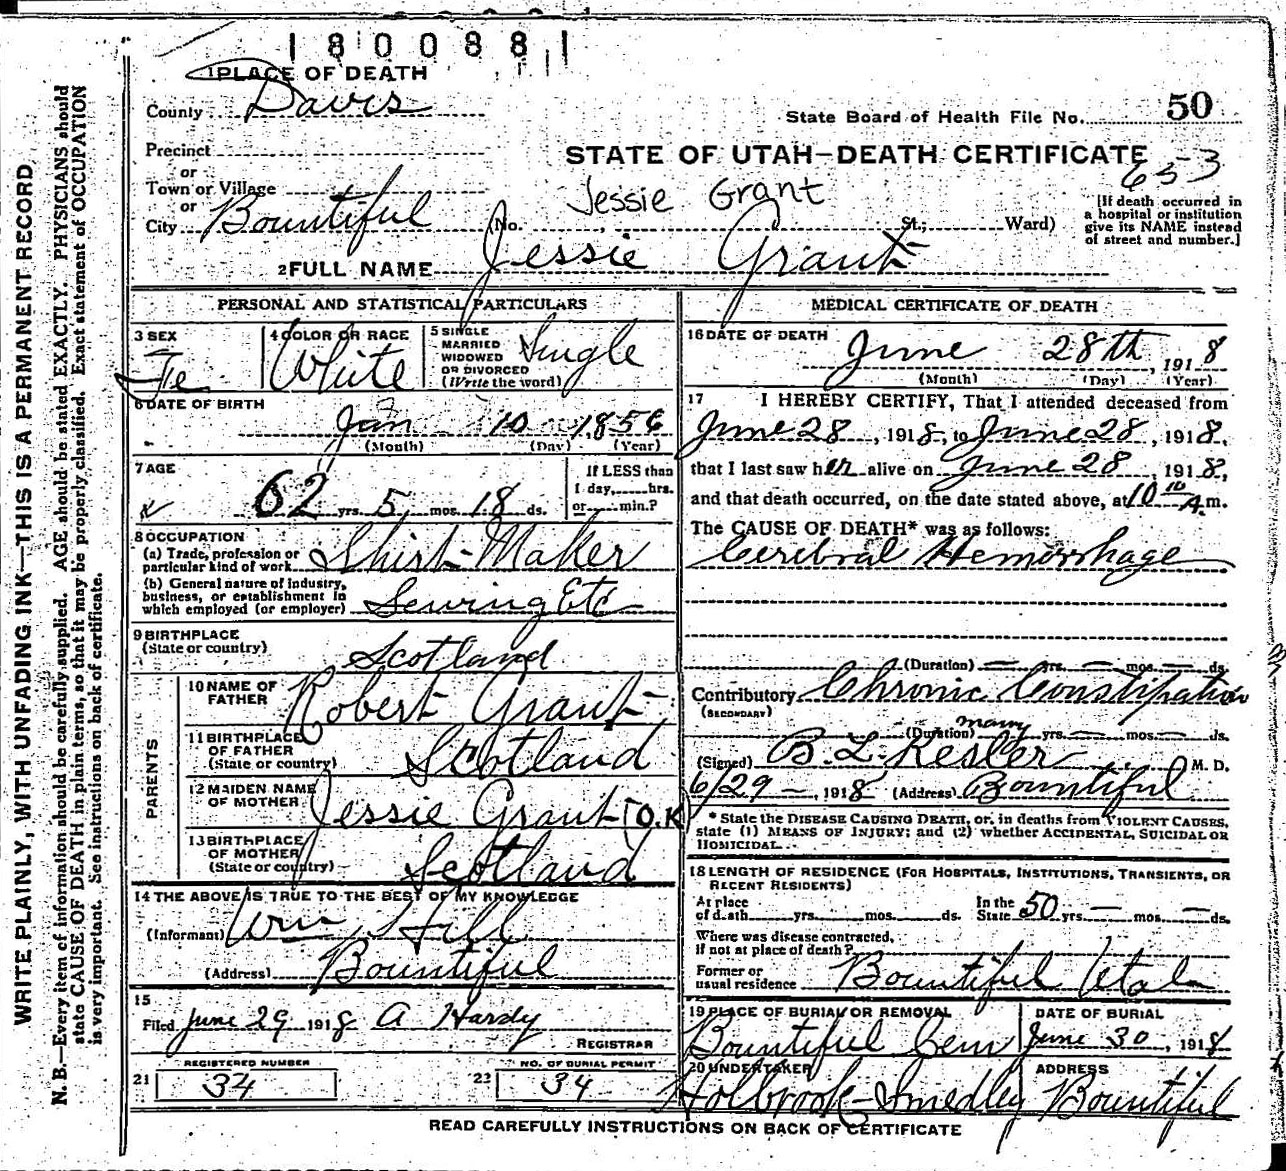 1800881
1 PLACE OF DEATH
County Davis
State Board of Health File No. 50
Precinct
STATE OF UTAH—DEATH CERTIFICATE
653
or
Town or Village
Jessie Grant
or
City Bountiful (No. St.; Ward)
[If death occurred in a hospital or institution give its NAME instead of street and number.]
2 FULL NAME Jessie Grant
PERSONAL AND STATISTICAL PARTICULARS
3 SEX Fe
4 COLOR OR RACE White
5 SINGLE MARRIED WIDOWED OR DIVORCED (Write the word) Single
6 DATE OF BIRTH
Jan 10, 1856
(Month) (Day) (Year)
7 AGE
62 yrs. 5 mos. 18 ds.
If LESS than 1 day, hrs. or min.?
8 OCCUPATION
(a) Trade, profession or particular kind of work Shirt-Maker
(b) General nature of industry, business, or establishment in which employed (or employer) Sewing Etc
9 BIRTHPLACE
(State or country) Scotland
PARENTS
10 NAME OF FATHER Robert Grant
11 BIRTHPLACE OF FATHER (State or country) Scotland
12 MAIDEN NAME OF MOTHER Jessie Grant [O.K]
13 BIRTHPLACE OF MOTHER (State or country) Scotland
14 THE ABOVE IS TRUE TO THE BEST OF MY KNOWLEDGE
(Informant) Wm Hill
(Address) Bountiful
15
Filed June 29 1918 A Hardy
REGISTRAR
REGISTERED NUMBER
21 34
NO. OF BURIAL PERMIT
22 34
MEDICAL CERTIFICATE OF DEATH
16 DATE OF DEATH
June 28th, 1918
(Month) (Day) (Year)
17 I HEREBY CERTIFY, That I attended deceased from
June 28, 1918, to June 28, 1918,
that I last saw her alive on June 28, 1918,
and that death occurred, on the date stated above, at 10 10 A.m.
The CAUSE OF DEATH* was as follows:
Cerebral Hemorrhage
(Duration) — yrs. — mos. — ds.
Contributory Chronic Constipation
(SECONDARY)
(Duration) many yrs. — mos. — ds.
(Signed) B. L. Kesler M. D.
6/29 —, 1918 (Address) Bountiful
* State the DISEASE CAUSING DEATH, or, in deaths from VIOLENT CAUSES,
state (1) MEANS OF INJURY; and (2) whether ACCIDENTAL, SUICIDAL OR
HOMICIDAL.
18 LENGTH OF RESIDENCE (FOR HOSPITALS, INSTITUTIONS, TRANSIENTS, OR
RECENT RESIDENTS)
At place of death yrs. mos. ds. In the State 50 yrs. — mos. — ds.
Where was disease contracted,
if not at place of death?
Former or usual residence Bountiful Utah
19 PLACE OF BURIAL OR REMOVAL
Bountiful Cem
DATE OF BURIAL
June 30, 1918
20 UNDERTAKER
Holbrook-Smedley
ADDRESS
Bountiful
READ CAREFULLY INSTRUCTIONS ON BACK OF CERTIFICATE
WRITE PLAINLY, WITH UNFADING INK—THIS IS A PERMANENT RECORD
N. B.—Every item of information should be carefully supplied. AGE should be stated EXACTLY. PHYSICIANS should
state CAUSE OF DEATH in plain terms, so that it may be properly classified. Exact statement of OCCUPATION
is very important. See instructions on back of certificate.